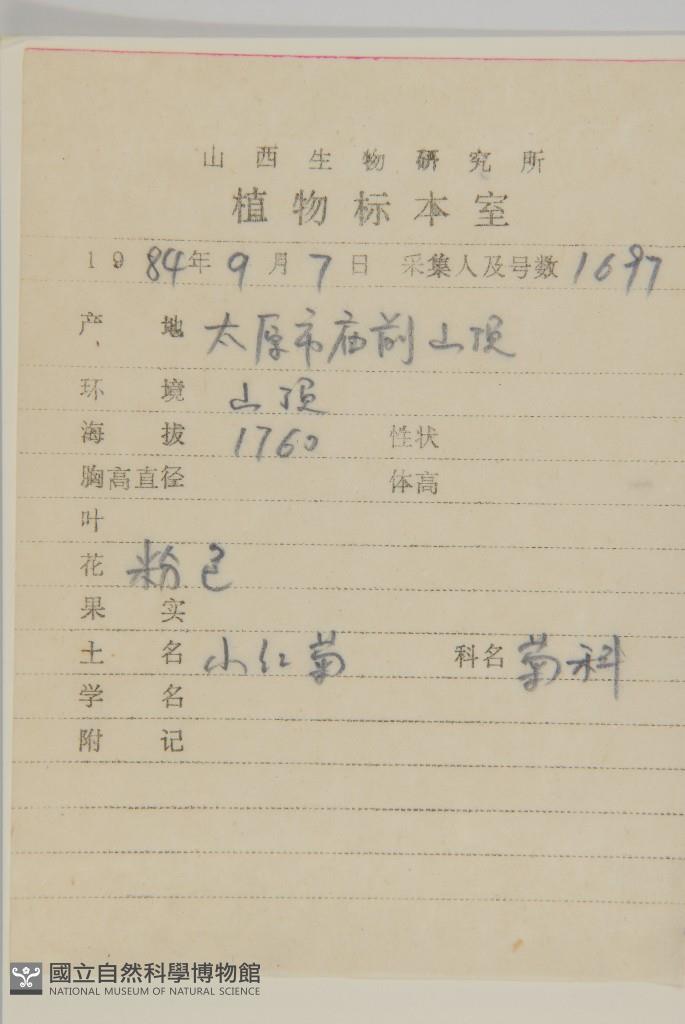 山西生物研究所
植物标本室
1984年9月7日 采集人及号数 1697
产地 太原市庙前山顶
环境 山顶
海拔 1760 性状
胸高直径 体高
叶
花 粉色
果实
土名 小红菊 科名 菊科
学名
附记
國立自然科學博物館
NATIONAL MUSEUM OF NATURAL SCIENCE